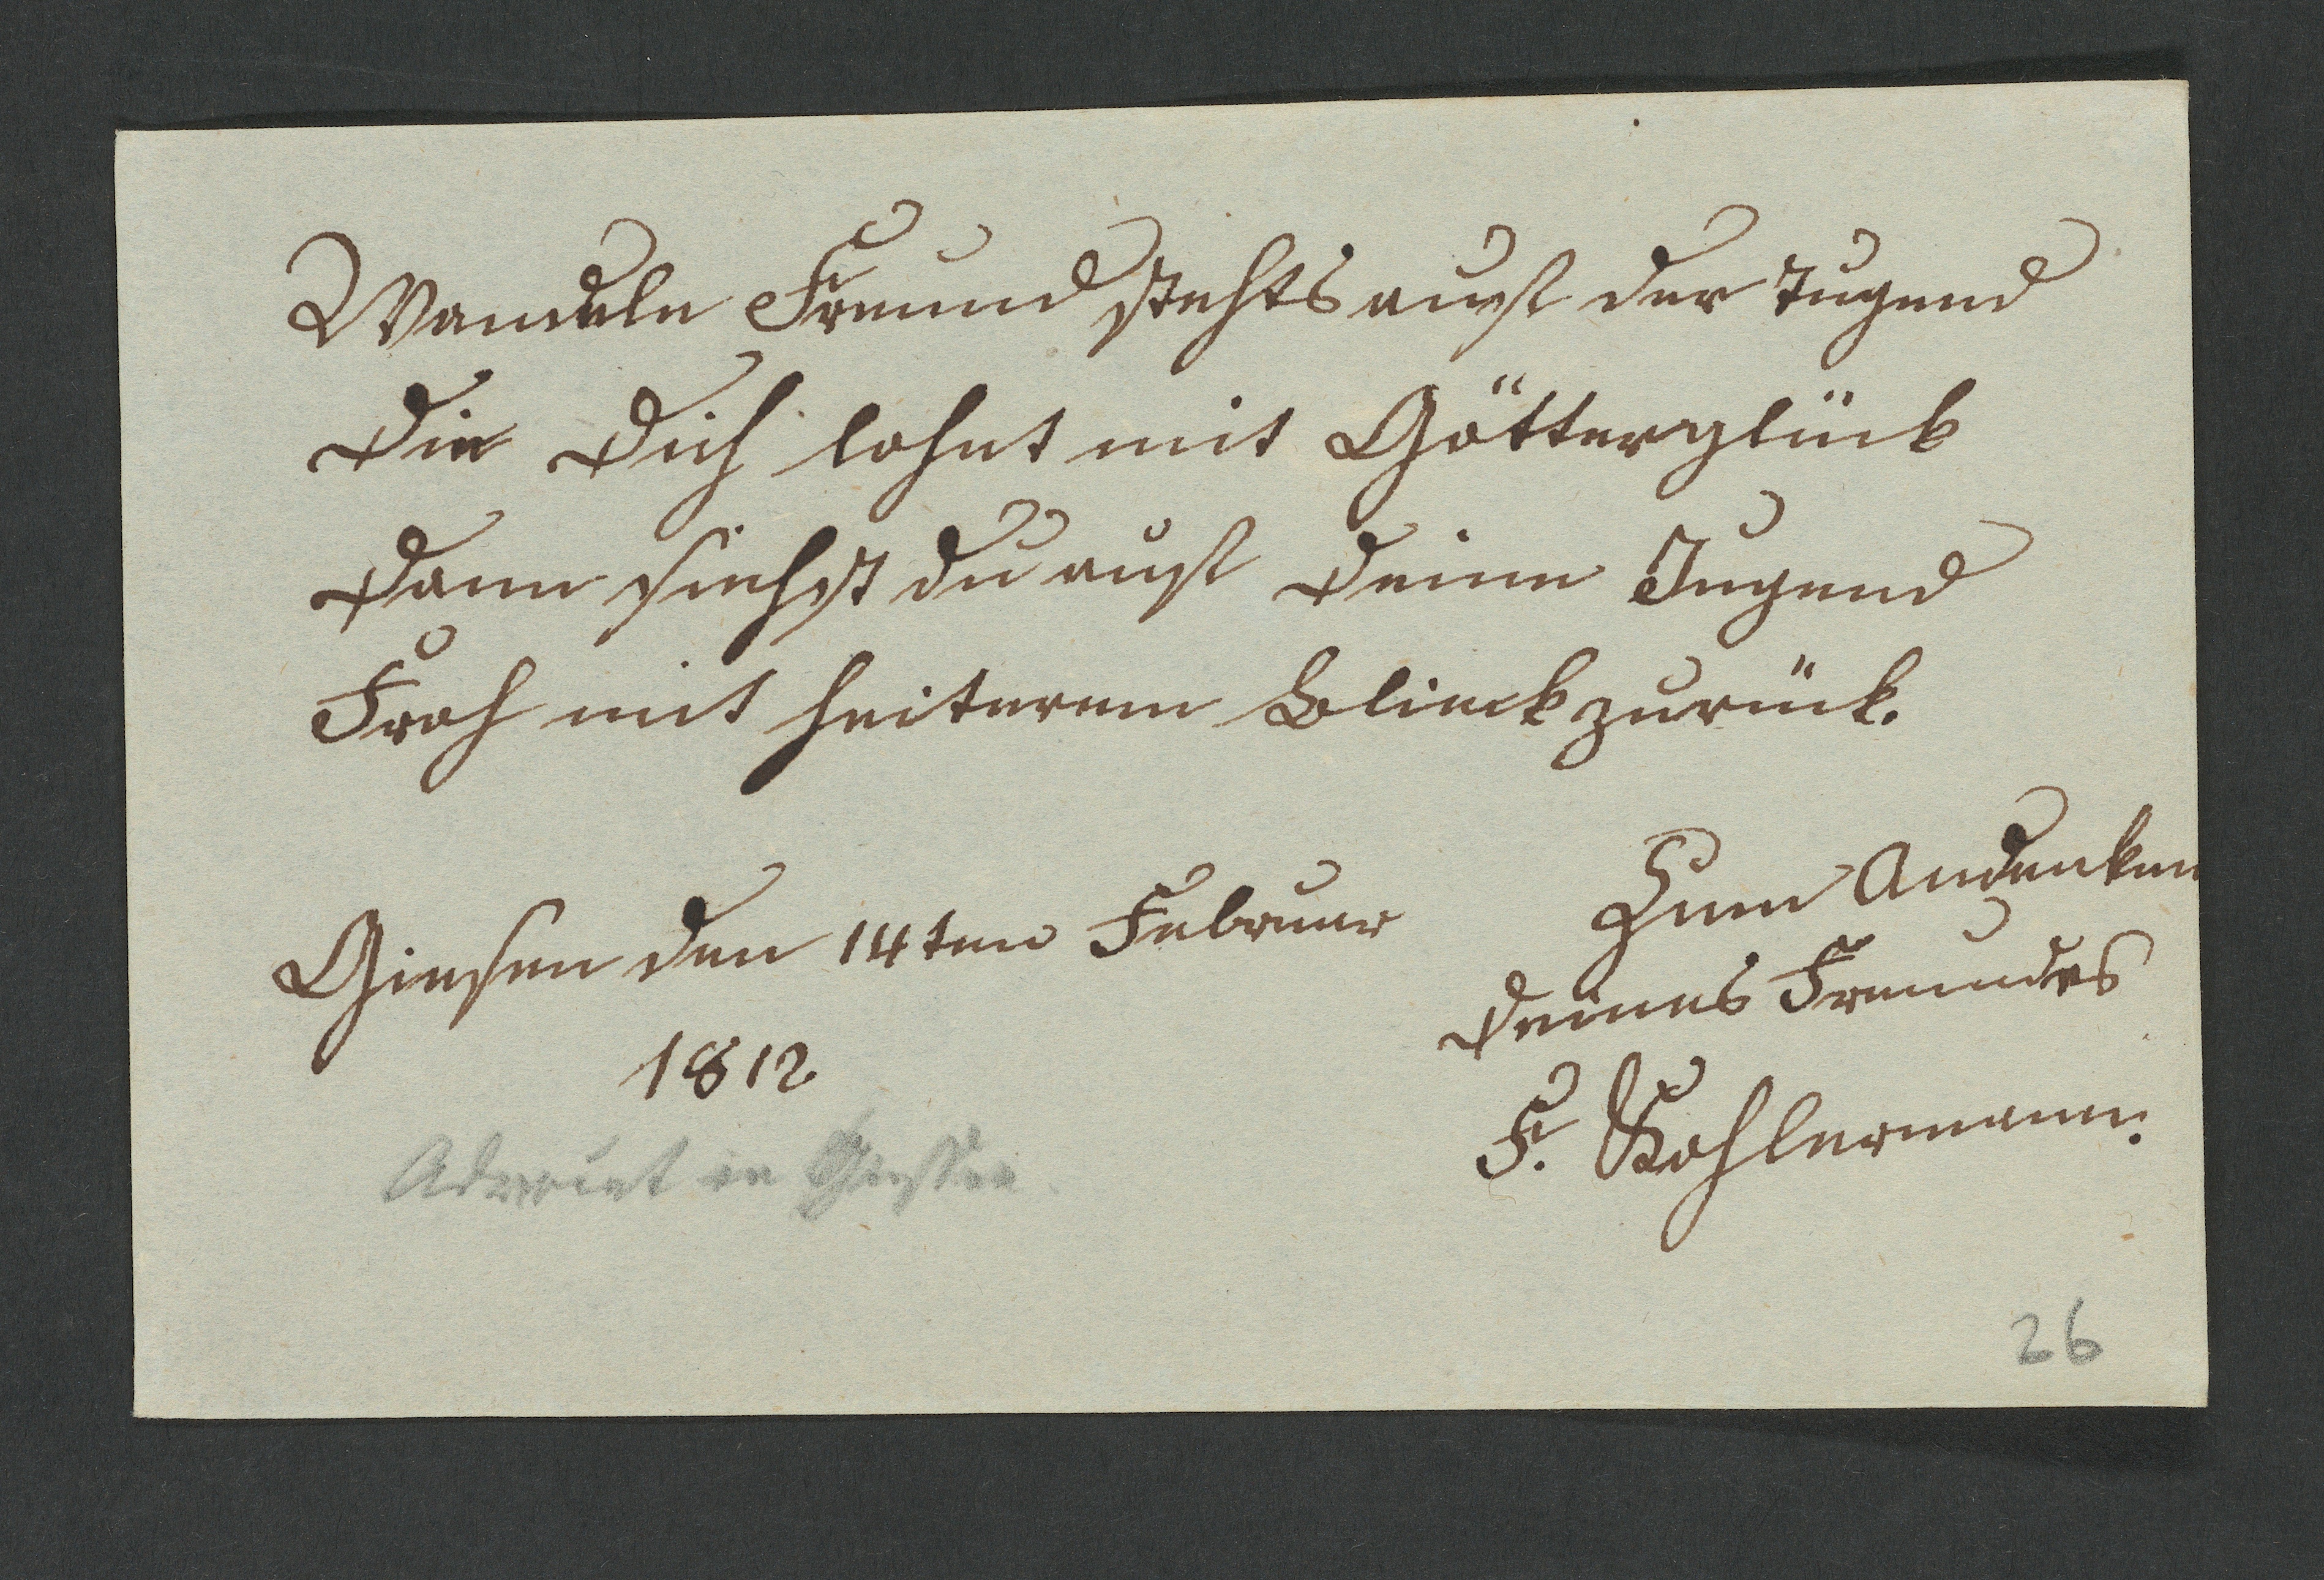 Wandele Freund stehts auf der Tugend
Die Dich lohnt mit Götterglück
Dann siehst du auf Deine Jugend
Froh mit heiterem Blieck zurück.
Giesen den 14ten Februar
1812
Zum Andenken
Deines Freundes
F. Kohlermann.
Advocat in Giessen
26